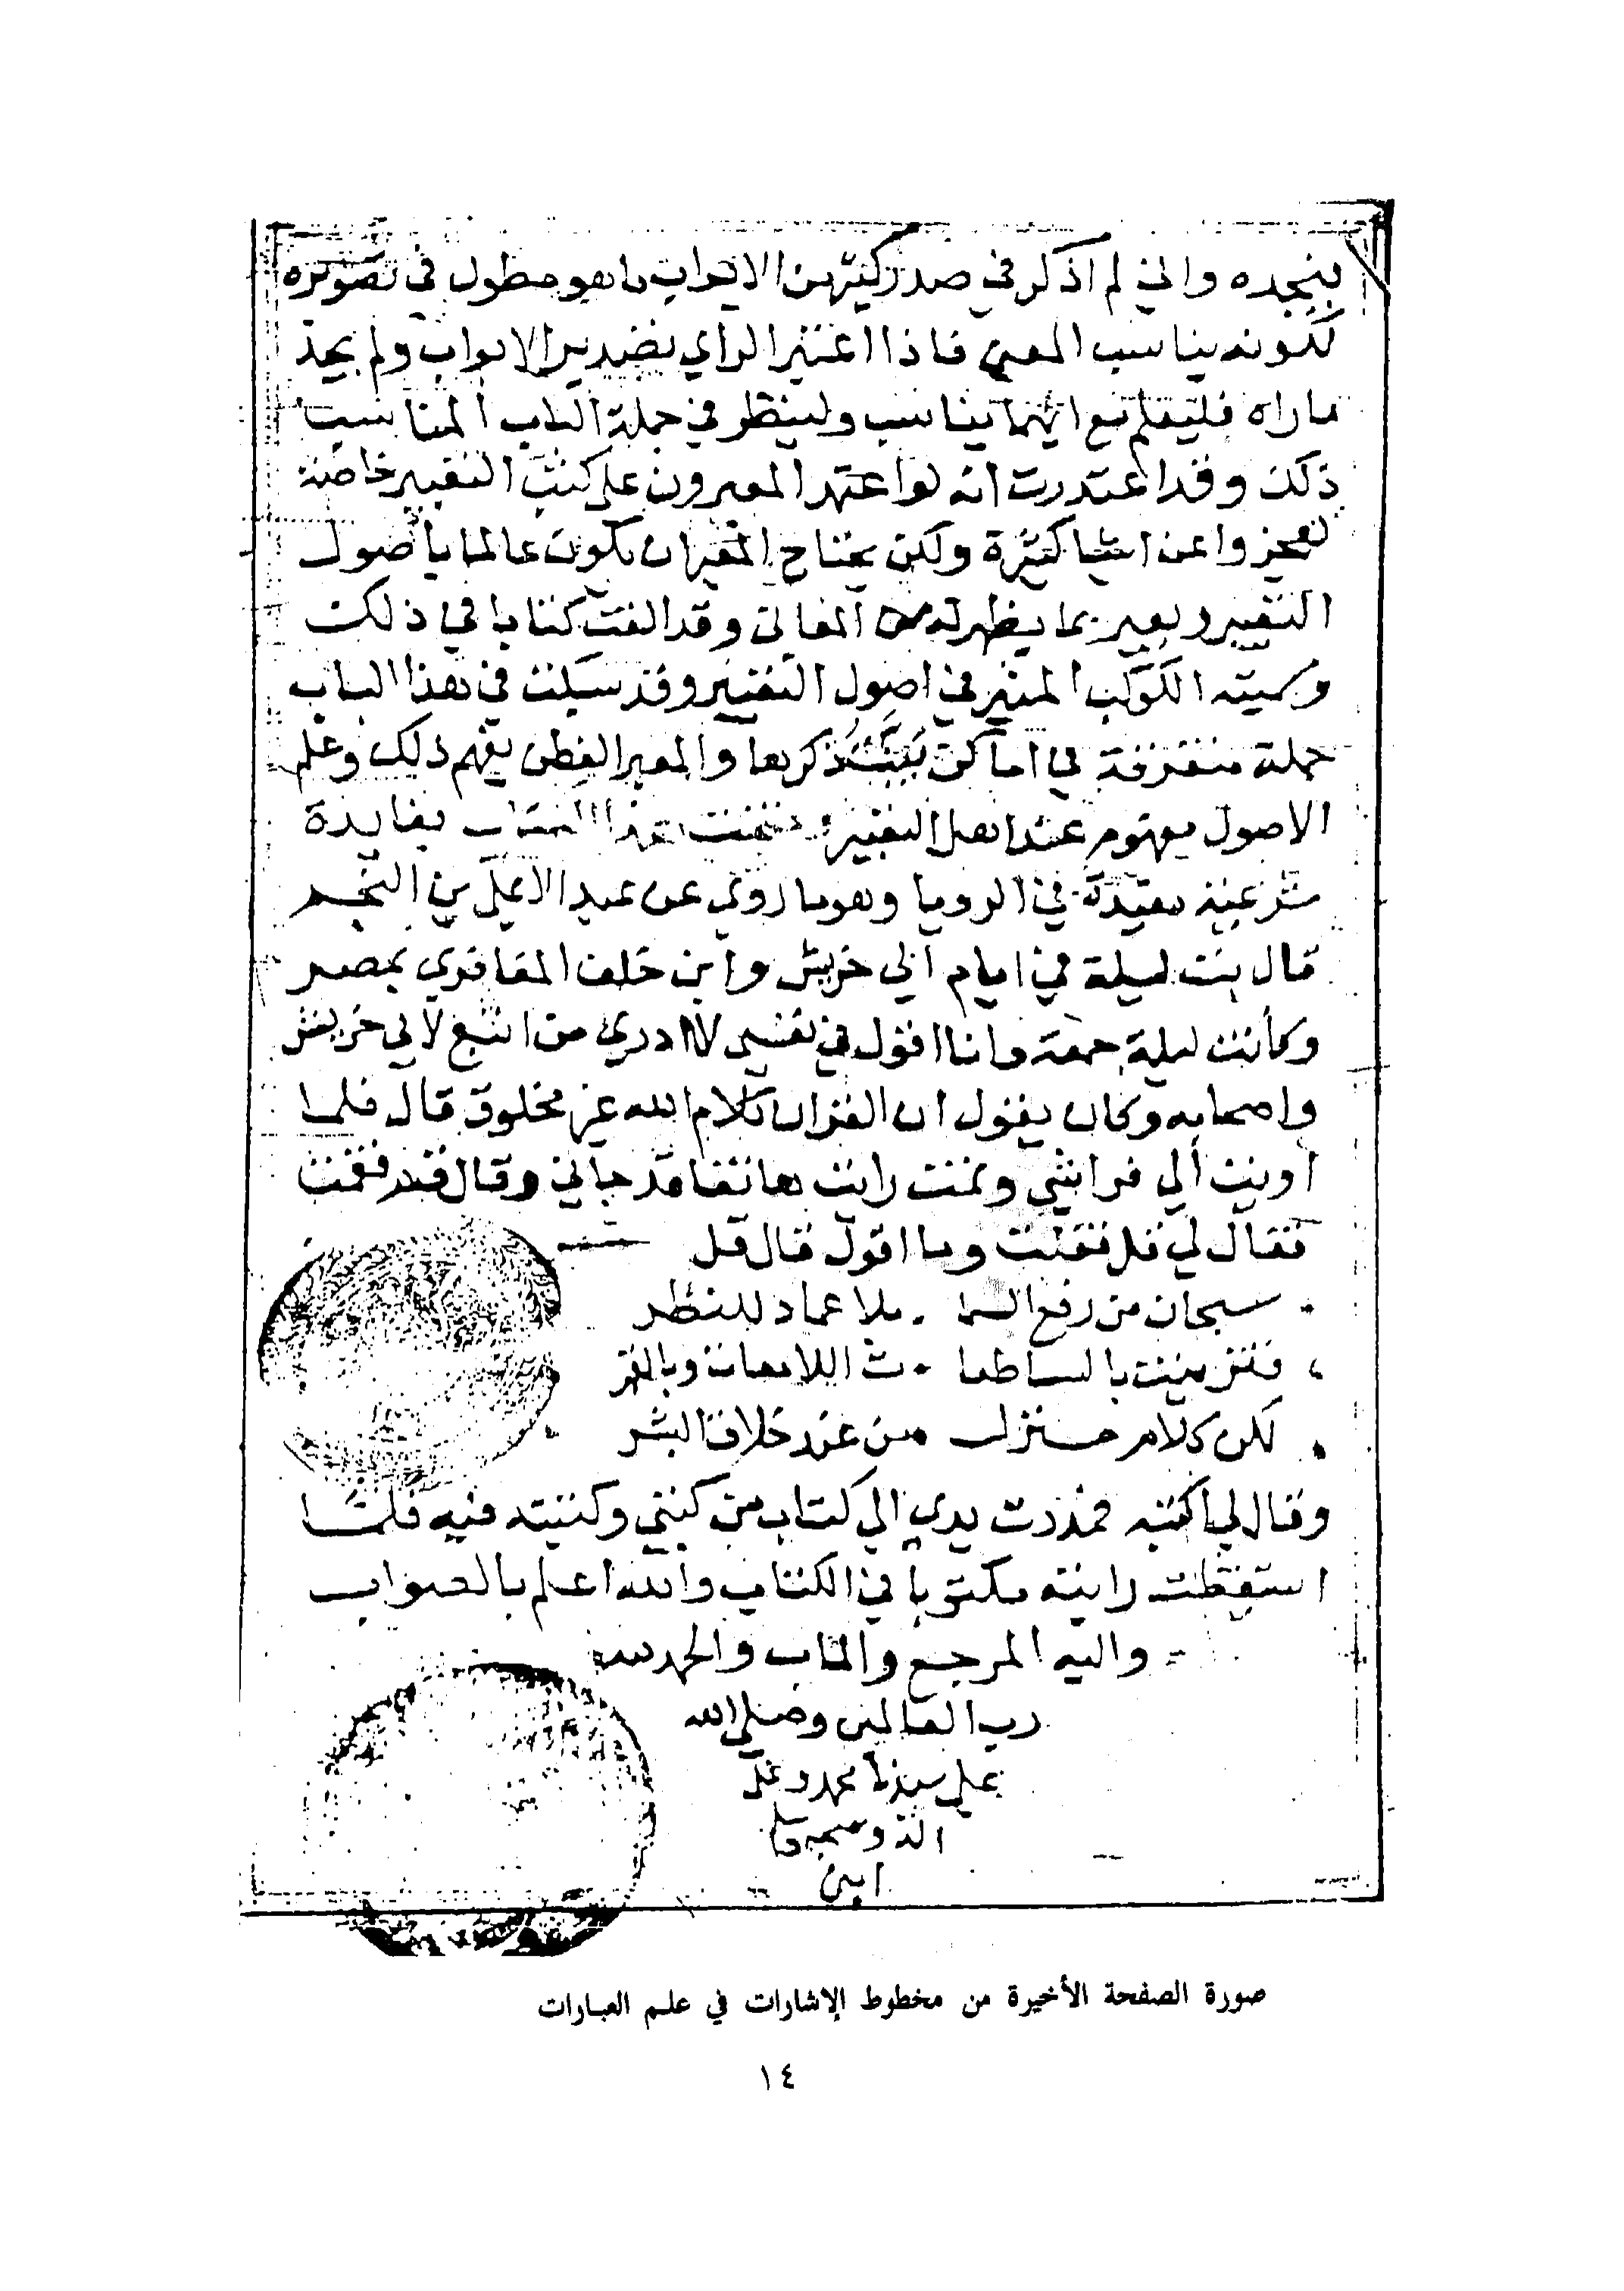 واني لم اذكر في صدر كثير من الابواب ما هو مطول في تصويره
لكونه يناسب المعنى فاذا اعتبر الراي تصدير الابواب ولم يجد
ماراه فليعلم مع ايهما يناسب ولينظر في جملة الباب المناسب
ذلك وقد اعتذرت انه لو اعتمد المعبرون على كتب التعبير خاصة
لعجزوا عن اشيا كثيرة ولكن يحتاج المعبران يكون عالما باصول
التعبير ويعبر بما يظهر له من المعاني وقد الفت كتابا في ذلك
وسميته الكوكب المنير في اصول التعبير وقد سيلت في هذا الباب
جملة متفرقة في اماكن ذكرها والمعبر الفطن يفهم ذلك وعلم
الاصول مفهوم عند اهل التعبير وختمت هذا الكتاب بفايدة
شرعية مفيدة في الرويا وهو ما روي عن عبد الاعلى بن النجم
قال بت ليلة في ايام ابي خريش وابن خلف المعافري بمصر
وكانت ليلة جمعة وانا اقول في نفسي لا ادري من اتبع لابي خريش
واصحابه وكان يقول ان القران كلام الله غير مخلوق قال فلما
اويت الي فراشي ونمت رايت هاتفا قد جاني وقال قم فقمت
فقال لي قل فقلت وما اقول قال قل
سبحان من رفع السما . بلا عماد للنظر
فتزينت بالساطعا . ت اللامعات وبالقمر
لكن كلام منزل من عند خلاق البشر
وقال لي اكتبه فمددت يدي الي كتاب من كتبي وكتبته فيه فلما
استيقظت رايته مكتوبا في الكتاب والله اعلم بالصواب
واليه المرجع والماب والحمد لله
رب العالمين وصلى الله
على سيدنا محمد وعلى
اله وصحبه
امين
صورة الصفحة الأخيرة من مخطوط الإشارات في علم العبارات
١٤